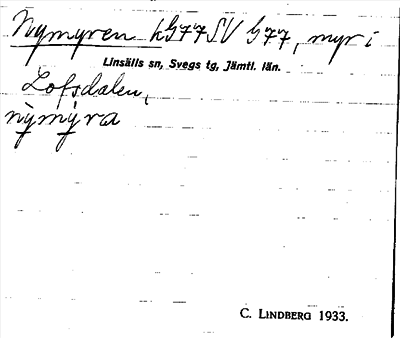 Nymyren hG77SV G77, myr i
Linsälls sn, Svegs tg, Jämtl. län.
Lofsdalen,
nỳmýra
C. LINDBERG 1933.